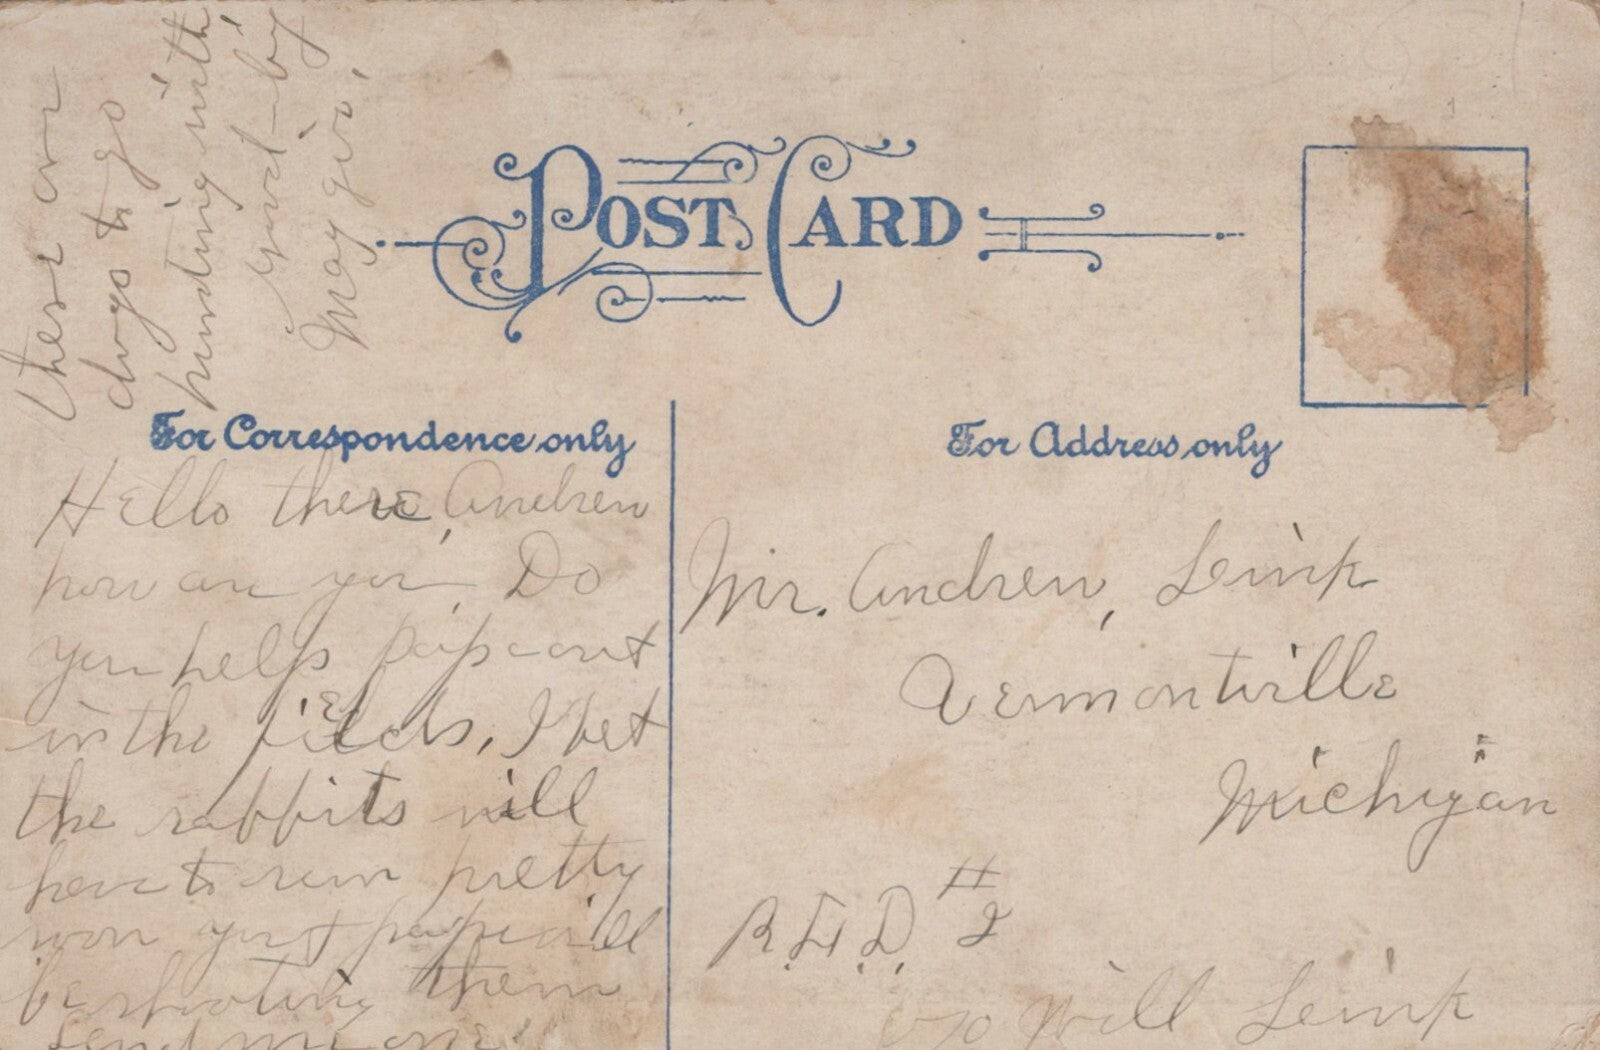 POST CARD
For Correspondence only
For Address only
Hello there, Andrew
how are you, Do
you help papa out
in the fields, I bet
the rabbits will
have to run pretty
you papa will
be shooting them
send me one
these are
dogs to go
hunting with
good-by
May
Mr. Andrew, Leink
Vermontville
Michigan
R.F.D. #2
c/o Will Leink